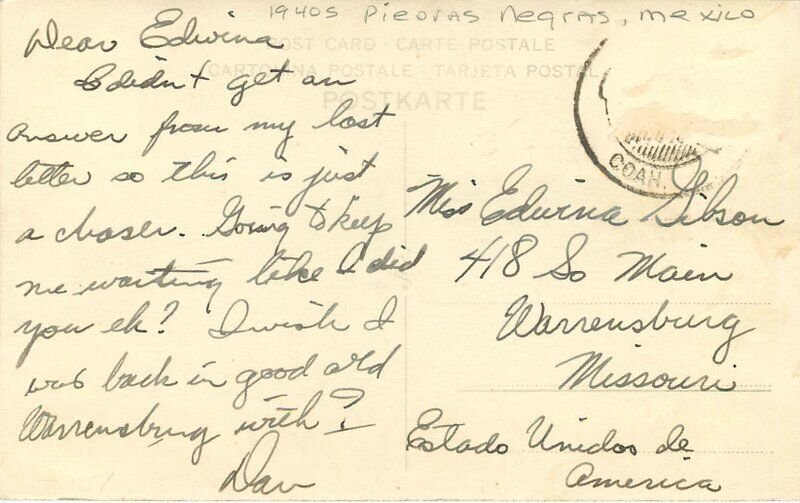 1940s Piedras Negras, Mexico
POST CARD · CARTE POSTALE
CARTOLINA POSTALE · TARJETA POSTAL
POSTKARTE
COAH.
Dear Edwina
I didn't get an
answer from my last
letter so this is just
a chaser. Going to keep
me waiting like I did
you eh? I wish I
was back in good old
Warrensburg with?
Dav
Miss Edwina Gibson
418 So Main
Warrensburg
Missouri
Estado Unidos de
America